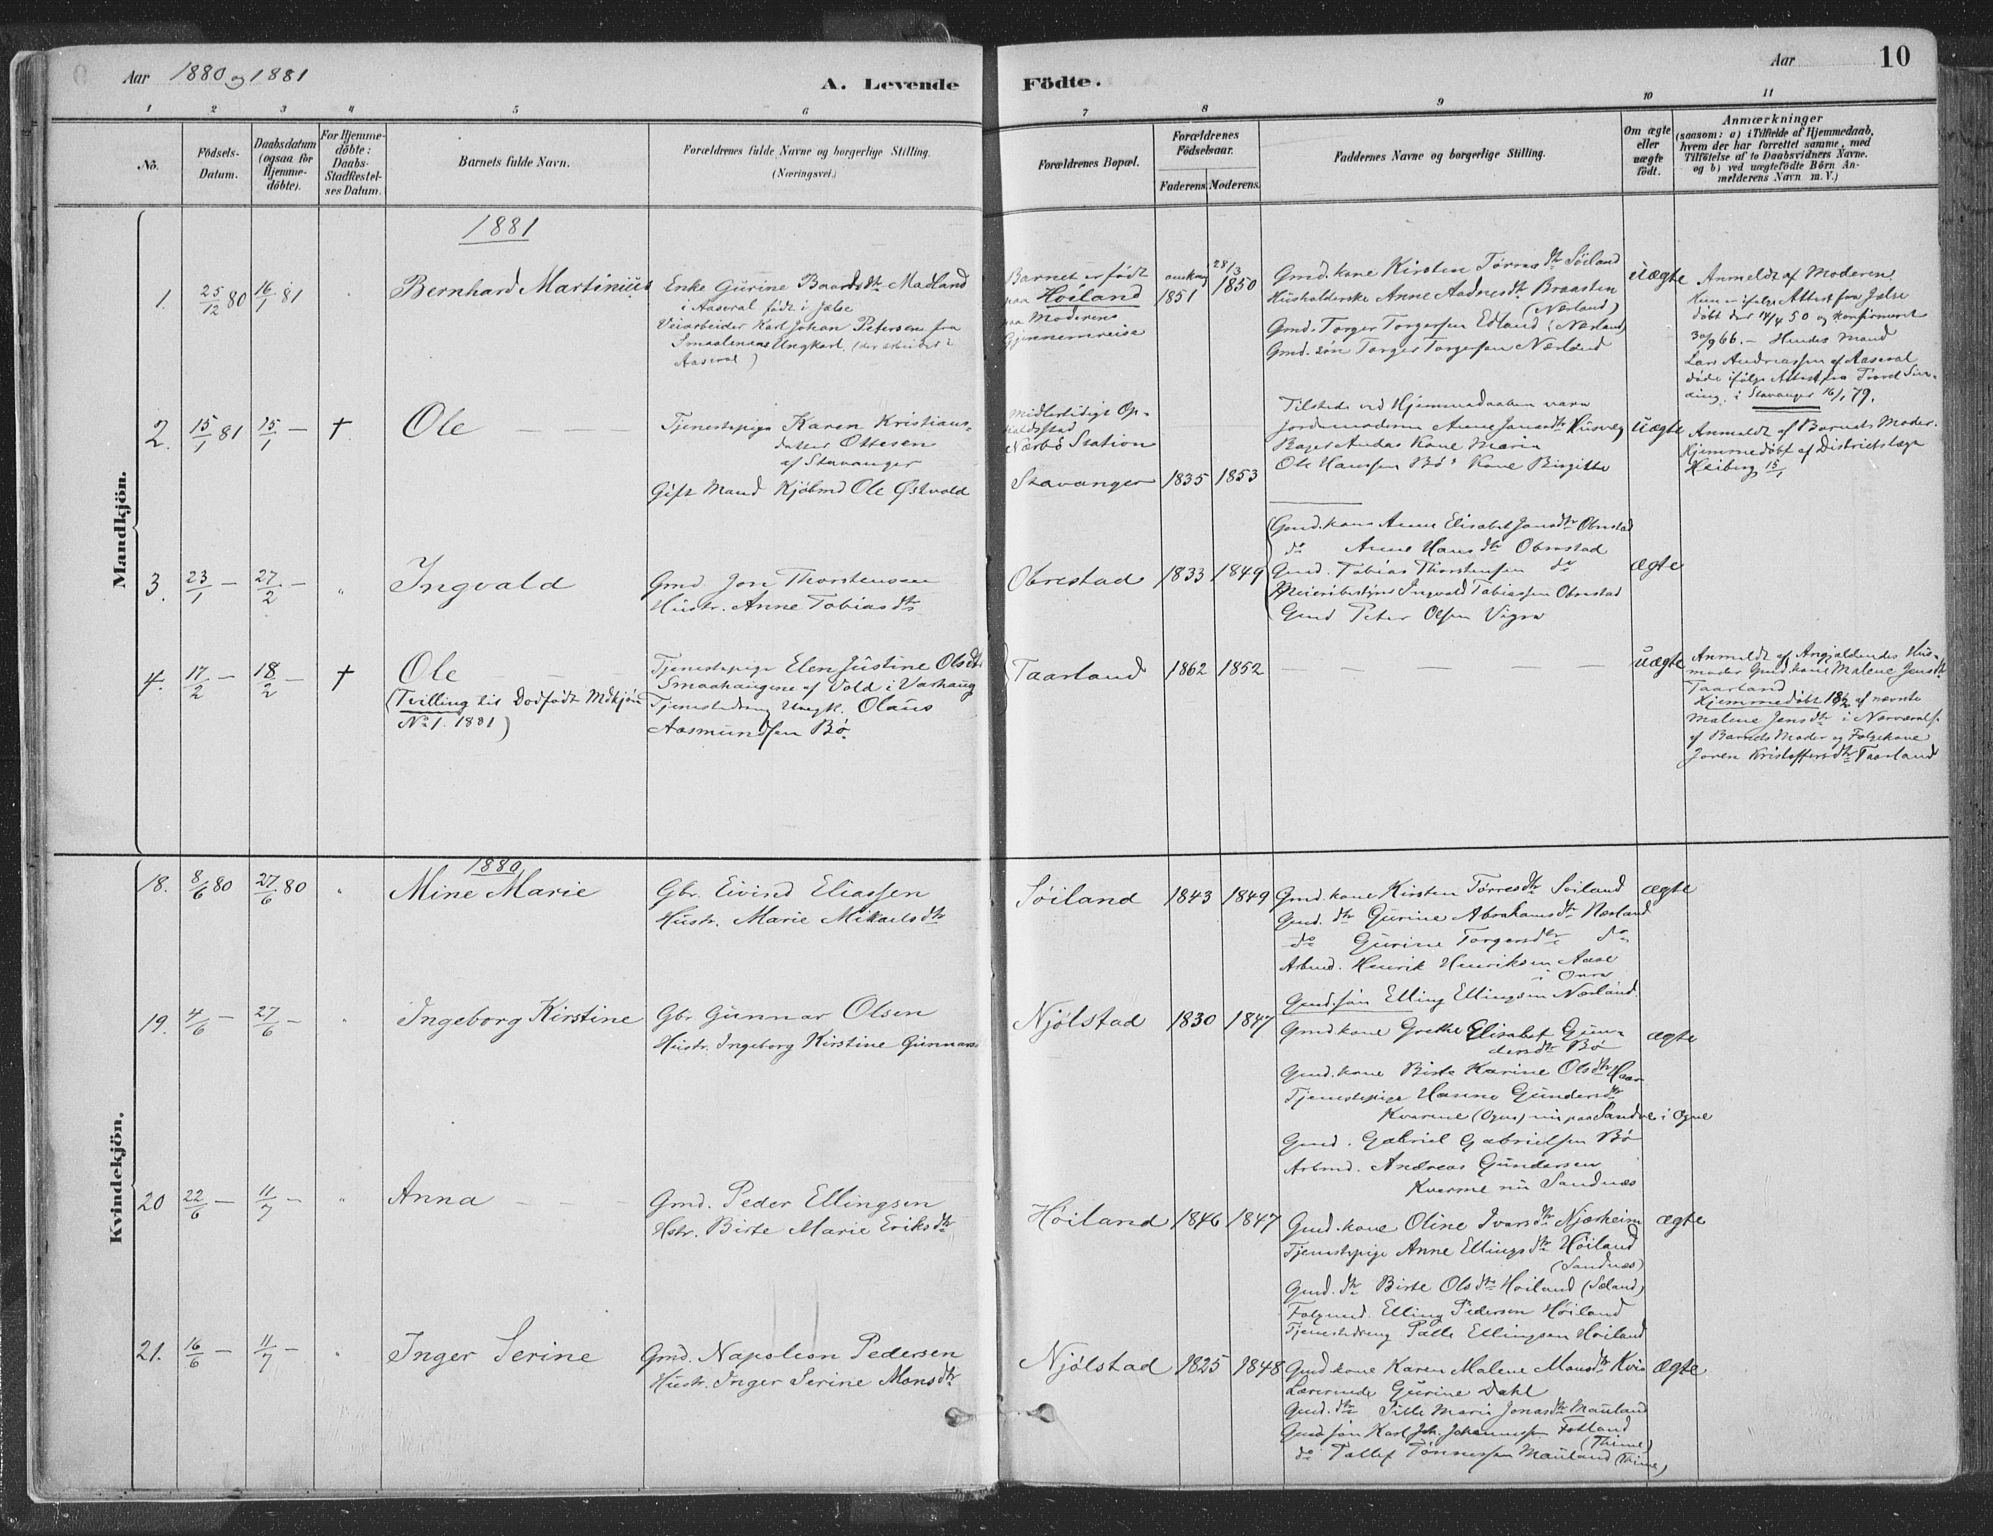 Aar 1880 og 1881
A. Levende Födte.
Aar 10
1 2 3 4 5 6 7 8 9 10 11
No.
Födsels-
Datum.
Daabsdatum
(ogsaa for
Hjemme-
döbte).
For Hjemme-
döbte:
Daabs-
Stadfæstel-
ses Datum.
Barnets fulde Navn.
Forældrenes fulde Navne og borgerlige Stilling.
(Næringsvei.)
Forældrenes Bopæl.
Forældrenes
Födselsaar.
Faderens. Moderens.
Faddernes Navne og borgerlige Stilling.
Om ægte
eller
uægte
födt.
Anmærkninger
(saasom: a) i Tilfælde af Hjemmedaab,
hvem der har forrettet samme, med
Tilföielse af to Daabsvidners Navne.
og b) ved uægtefödte Börn An-
melderens Navn m. V.)
Mandkjön.
1881
1. 25/12 80 16/1 81 "
Bernhard Martinius
Enke Gurine Baardsdtr Madland
i Aaseral født i Jølse
Veiarbeider Karl Johan Petersen fra
Smaalenene Ungkarl (der arbeidet i
Aaseral)
Barnet er født
paa Høiland
paa Moderens
Gjennemreise
omkring
1851
28/3
1850
Gmd. kone Kirsten Tørresdtr Søiland
Husholderske Anne Aadnesdtr Braasten
(Nærland)
Gmd. Torger Torgersen Edland (Nærland)
Gmd. søn Torger Torgersen Nærland
uægte
Anmeldt af Moderen.
Hun er ifølge Attest fra Jølse
døbt der 14/4 50 og konfirmeret
30/9 66. – Hendes Mand
Lars Andreassen af Aaseral
døde ifølge Attest fra
i Stavanger 16/1 79.
2. 15/1 81 15/1 — †
Ole — —
Tjenestepige Karen Kristians-
datter Ottesen
af Stavanger
Gift Mand Kjøbmd Ole Østvold
Midlertidigt Op-
holdssted
Nærbø Station
Stavanger 1835 1853
Tilstede ved Hjemmedaaben vare
Jordemoderen Anne Jonasdtr Husveg
Bager Andas Kone Maria
Ole Hanssen Bø's Kone Birgitte
uægte
Anmeldt af Barnets Moder.
Hjemmedøbt af Distriktslæge
Heiberg 15/1
3. 23/1 — 27/2 — "
Ingvald
Gmd. Jon Thorstensen
Hustr. Anne Tobiasdtr
Obrestad 1833 1849
Gmd. kone Anne Elisabet Jonsdtr Obrestad
do Anne Hansdtr Obrestad
Gmd. Tobias Thorstensen do
Meieribestyrer Ingvald Tobiassen Obrestad
Gmd Peter Olsen Vigre
ægte
4. 17/2 — 18/2 — †
Ole —
(Tvilling til Dødfødt Mdkjøn
No 1. 1881)
Tjenestepige Elen Justine Olsdtr
Smaahaugene af Vold i Varhaug
Tjenestedreng Ungk. Olaus
Aasmundsen Bø.
Taarland 1862 1852
— — — — —
uægte
Anmeldt af Angjældendes Hus-
moder Gmd. kone Malene Jensdtr
Taarland
Hjemmedøbt 18/2 af nævnte
Malene Jensdtr i Nærværelse
af Barnets Moder og Følgekone
Joren Kristoffersdtr Taarland
Kvindekjön.
1880
18. 8/6 80 27/6 80 "
Mine Marie
Gbr. Eivind Eliassen
Hustr. Marie Mikaelsdtr
Søiland 1843 1849
Gmd. kone Kirsten Tørresdtr Søiland
Gmd. dtr Gurine Abrahamsdtr Nærland
do Gurine Torgersdtr do
Arbmd. Henrik Henriksen Aase
i Ogna
Gmd. søn Elling Ellingsen Nærland.
ægte
19. 4/6 — 27/6 — "
Ingeborg Kirstine
Gbr Gunnar Olsen
Hustr. Ingeborg Kirstine Gunnars
Njølstad 1830 1847
Gmd kone Grethe Elisabet Gun-
dersdtr Bø
Gmd. kone Birte Karine Olsdtr Haar
Tjenestepige Hanne Gundersdtr
Kverme (Ogna) nu paa Sandve i Ogne
Gmd. Gabriel Gabrielsen Bø
Arbmd. Andreas Gundersen
Kverme nu Sandnæs
ægte
20 22/6 — 11/7 — "
Anna — — —
Gmd. Peder Ellingsen
Hstr. Birte Marie Eriksdtr
Høiland 1846 1847
Gmd. kone Oline Ivarsdtr Njærheim
Tjenestepige Anne Ellingsdtr Høiland
(Sandnæs)
Gmd. dtr Birte Olsdtr Høiland (Søland)
Følgmd. Elling Pedersen Høiland
Tjenestedreng Palle Ellingsen Høiland
ægte
21. 16/6 — 11/7 — "
Inger Serine
Gmd. Napoleon Pedersen
Hustr. Inger Serine Monsdtr
Njølstad 1825 1848
Gmd. kone Karen Malene Monsdtr Kvia
Lærerinde Gurine Dahl
Gmd. dtr Sille Marie Jonasdtr Mauland
Gmd søn Karl Joh. Johannessen Fotland
(Thime)
do Tallef Tønnessen Mauland (Thime)
ægte